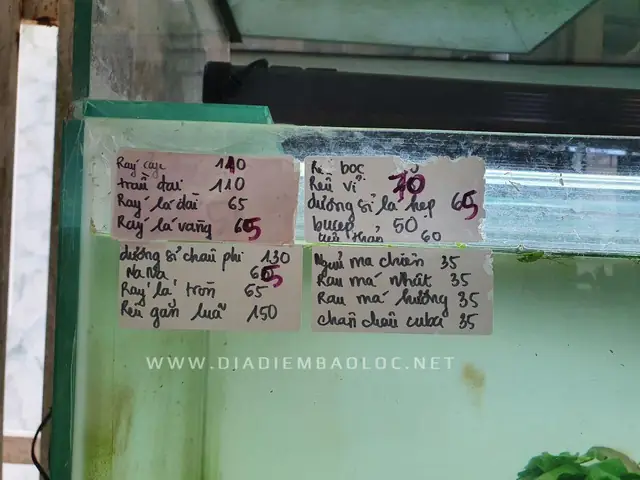 Ráy cay 110
trầu đai 110
Ráy lá dài 65
Ráy lá vàng 65
boc
Rêu vỉ 70
dương sỉ lá hẹp 65
bucep 50
60
dương sỉ châu phi 130
NaNa 65
Ráy lá tròn 65
Rêu gắn luã 150
Ngưu ma chiên 35
Rau má nhât 35
Rau má hương 35
chân châu cuba 35
WWW.DIADIEMBAOLOC.NET